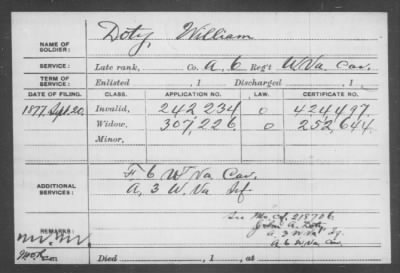 NAME OF SOLDIER: Doty, William
SERVICE: Late rank, Co. A. 6 Reg't W Va. Cav.
TERM OF SERVICE: Enlisted , 1 Discharged , 1
DATE OF FILING. CLASS. APPLICATION NO. LAW. CERTIFICATE NO.
1877 Sept 20 Invalid, 242,234 o 424497
Widow, 307,226 o 252,644
Minor,
ADDITIONAL SERVICES: F 6 W Va Cav.
A, 3 W. Va Inf.
See Mo. Cf. 218706
REMARKS: A. Doty
A 3 W Va
A 6 W Va Cav
Died , 1 , at